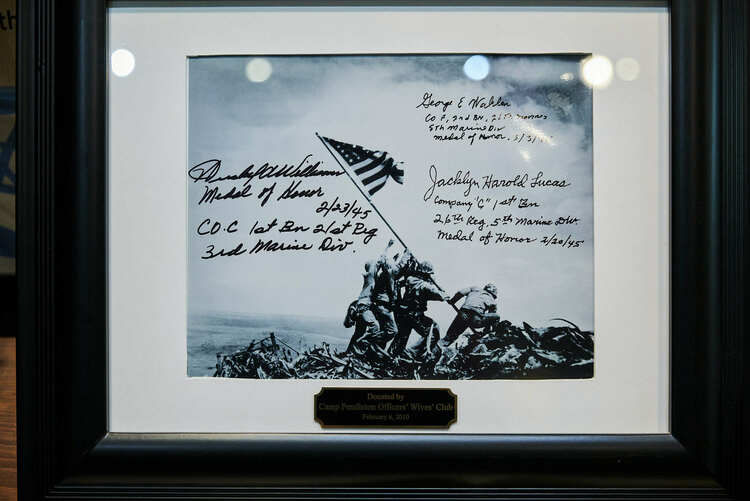 th
Hershel W Williams
Medal of Honor
2/23/45
CO. C 1st Bn 21st Reg
3rd Marine Div.
George E Wahlen
CO F, 2nd BN, 26th Marines
5th Marine Div
Medal of Honor, 3/3/45
Jacklyn Harold Lucas
Company "C" 1st Bn
26th Reg, 5th Marine Div.
Medal of Honor 2/20/45
Donated by
Camp Pendleton Officers' Wives' Club
February 6, 2010